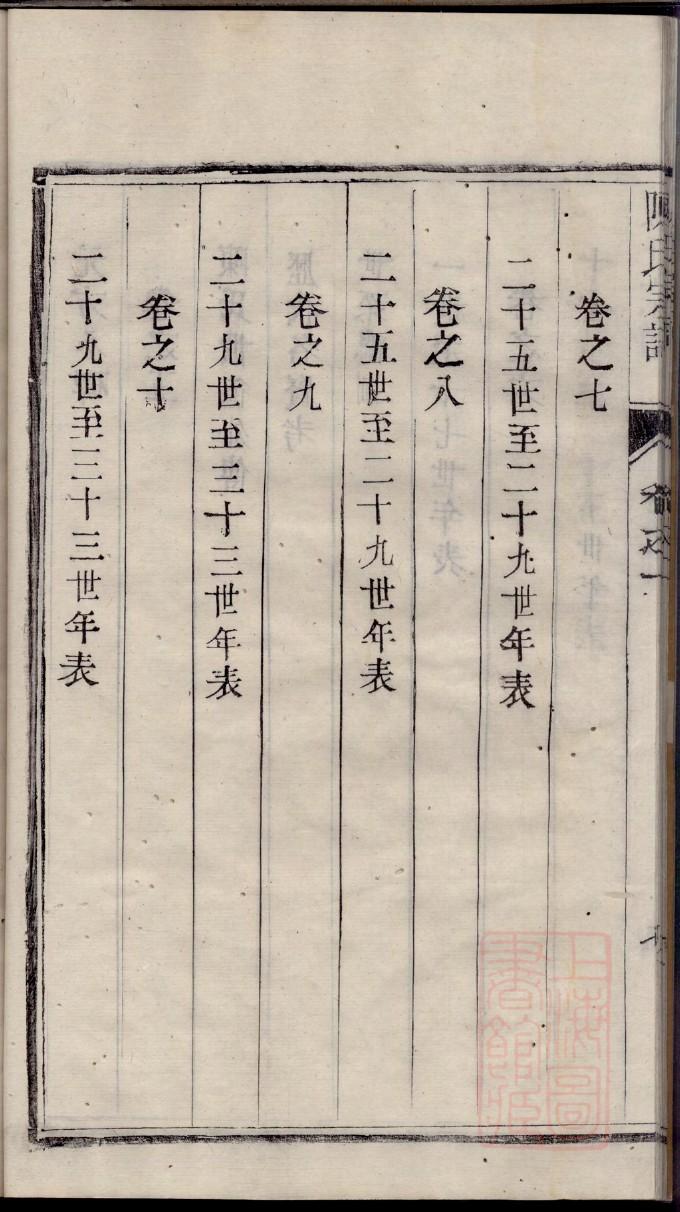 卷之七
二十五世至二十九世年表
卷之八
二十五世至二十九世年表
卷之九
二十九世至三十三世年表
卷之十
二十九世至三十三世年表
陳氏宗譜
卷之一
上海圖書館藏